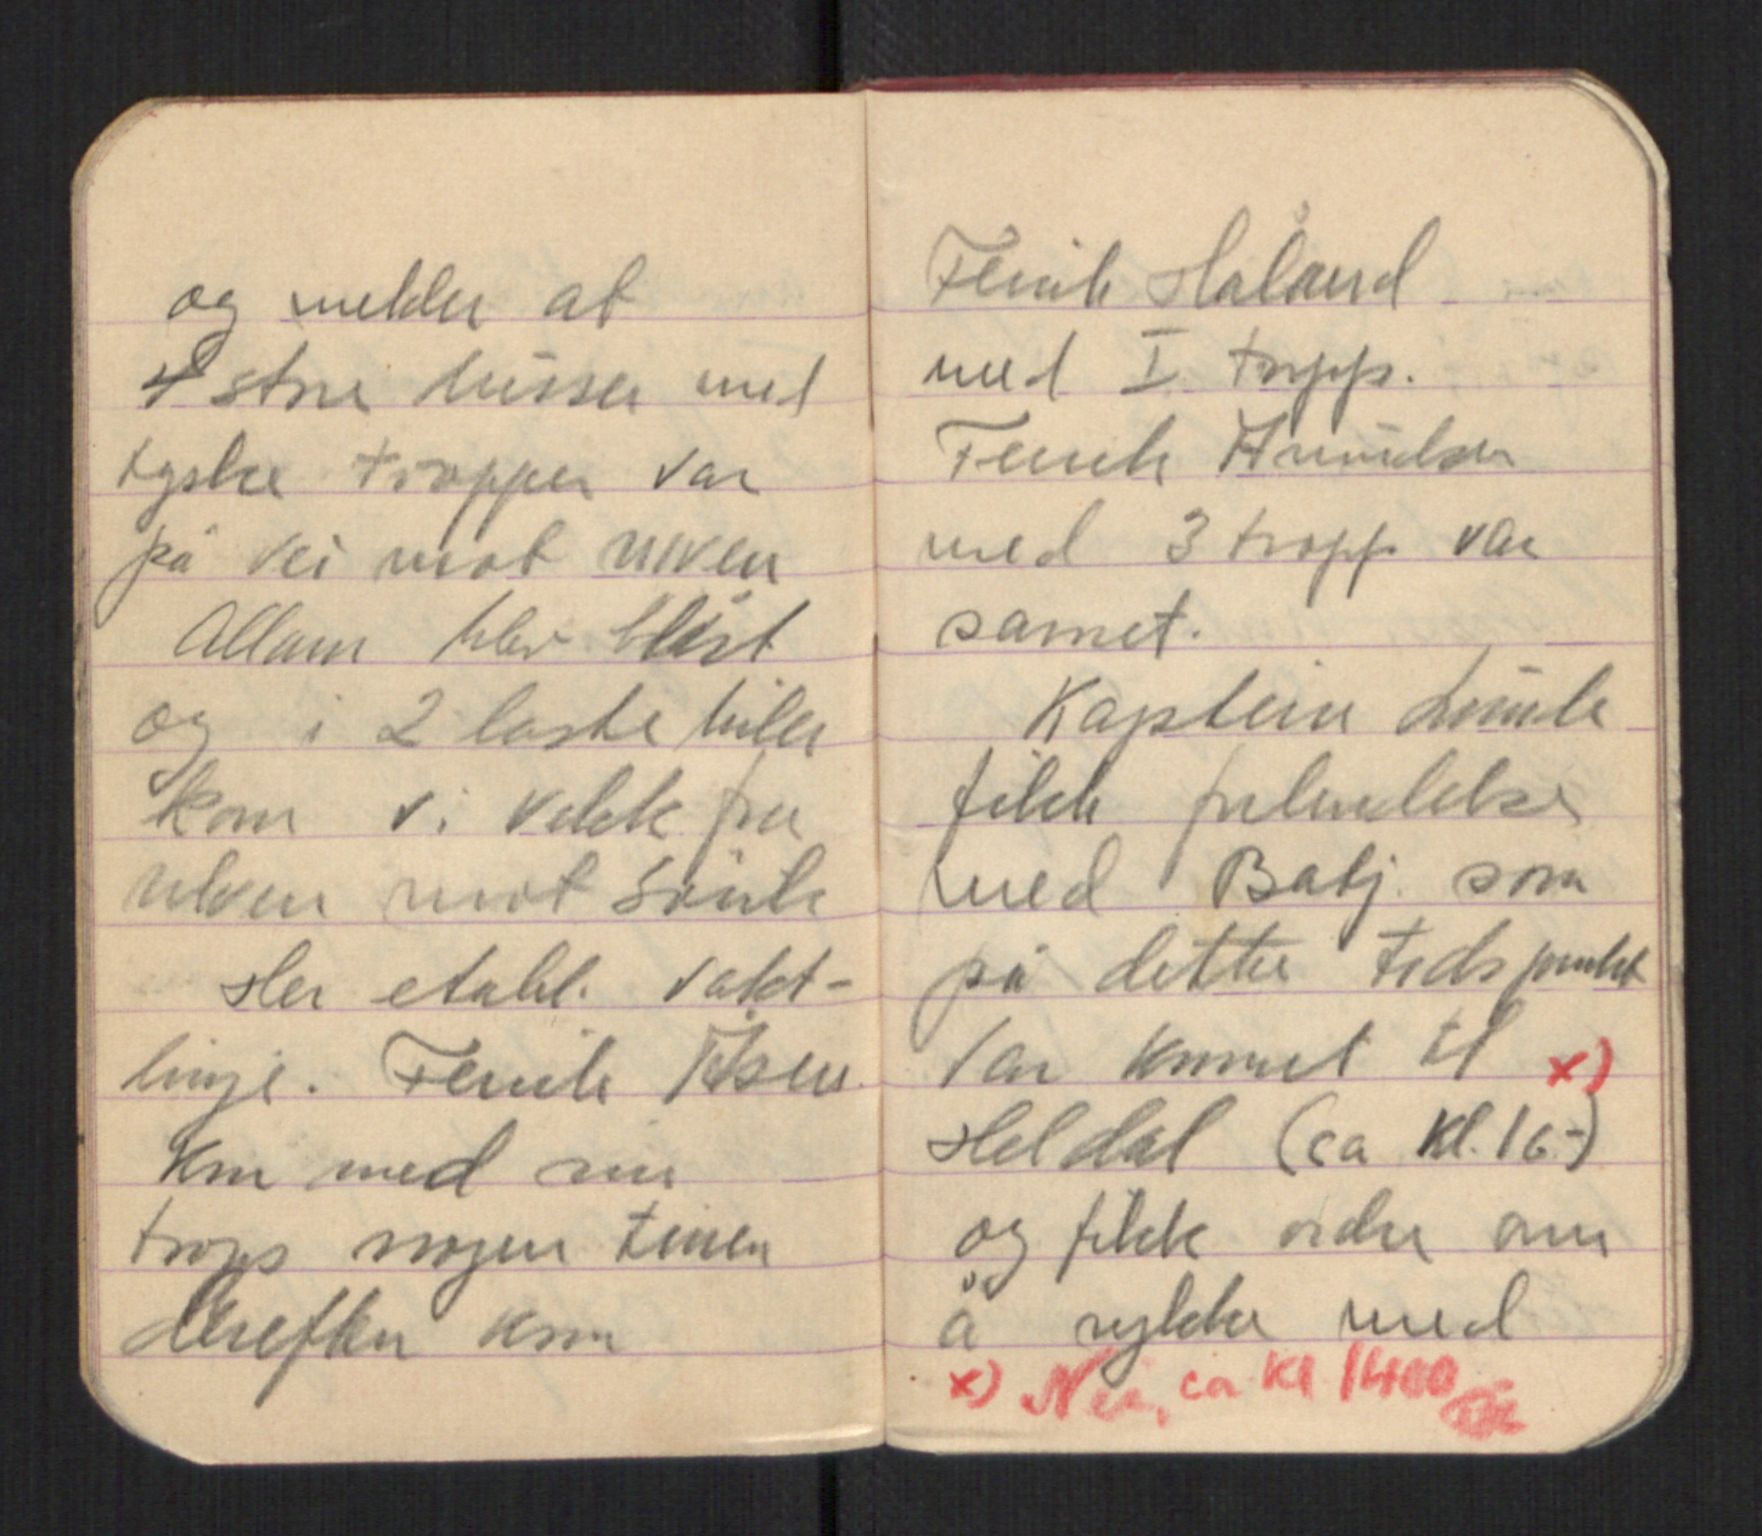 og melder at
4 store busser med
tyske tropper var
på vei mot Ulven
Allarm blev blåst
og i 2 laste biler
kom vi vekk fra
Ulven mot
Her etabl. vakt-
linje. Fenrik
kom med sin
tropp nogen timer
derefter kom
Fenrik Håland
med I. tropp.
Fenrik Amundsen
med 3 tropp var
samet.
Kaptein
fikk forbindelse
med Batj. som
på dette tidspunkt
var kommet til x)
Heldal (ca kl. 16-)
og fikk ordre om
å rykke med
x) Nei, ca kl 1400